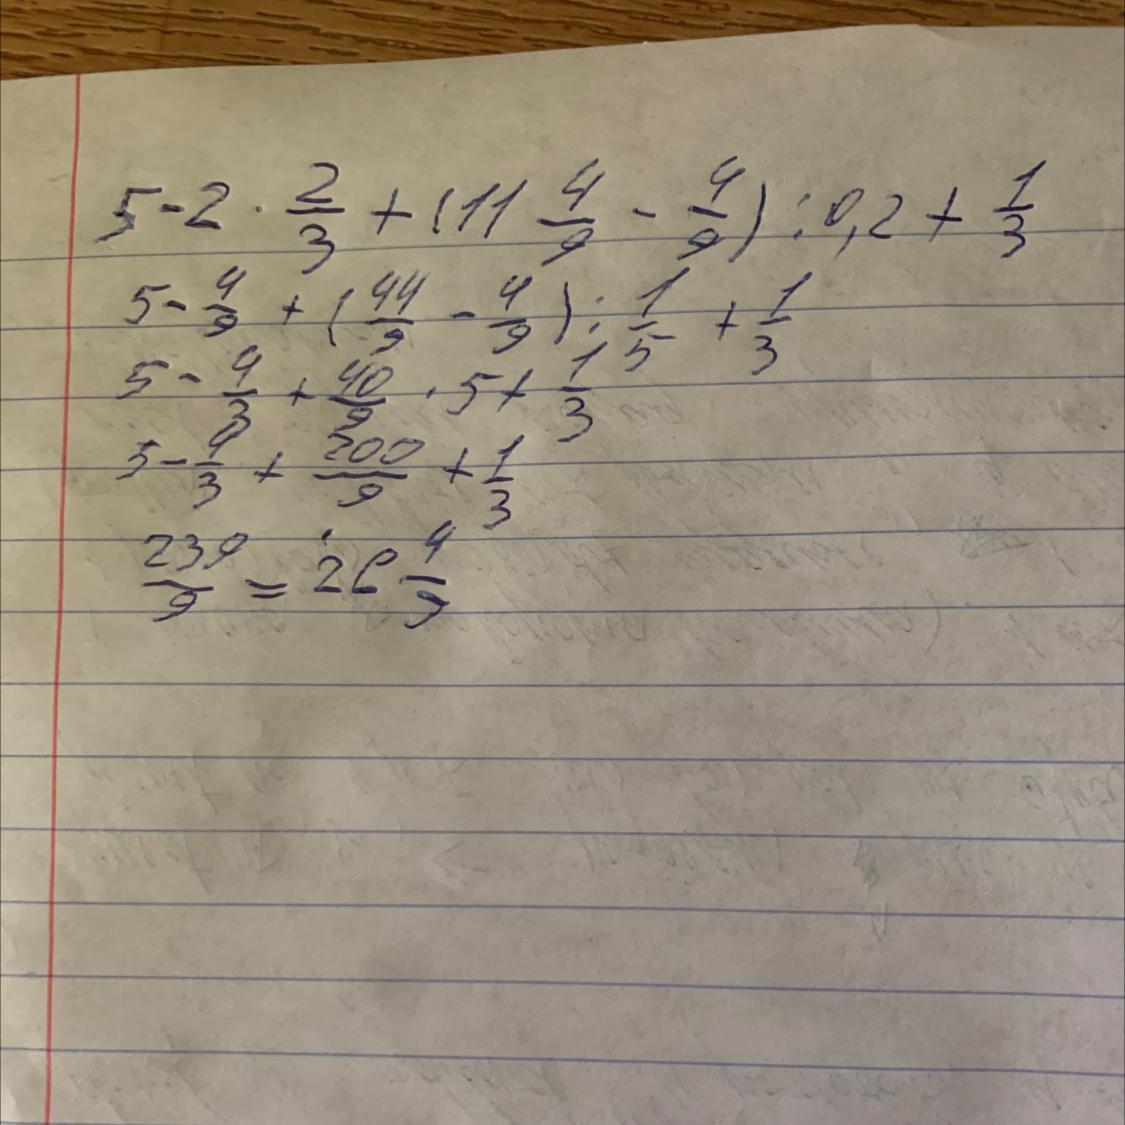 5 - 2 · 2/3 + (11 4/9 - 4/9) : 0,2 + 1/3
5 - 4/9 + (44/9 - 4/9) : 1/5 + 1/3
5 - 4/3 + 40/9 · 5 + 1/3
5 - 4/3 + 200/9 + 1/3
239/9 = 26 4/9